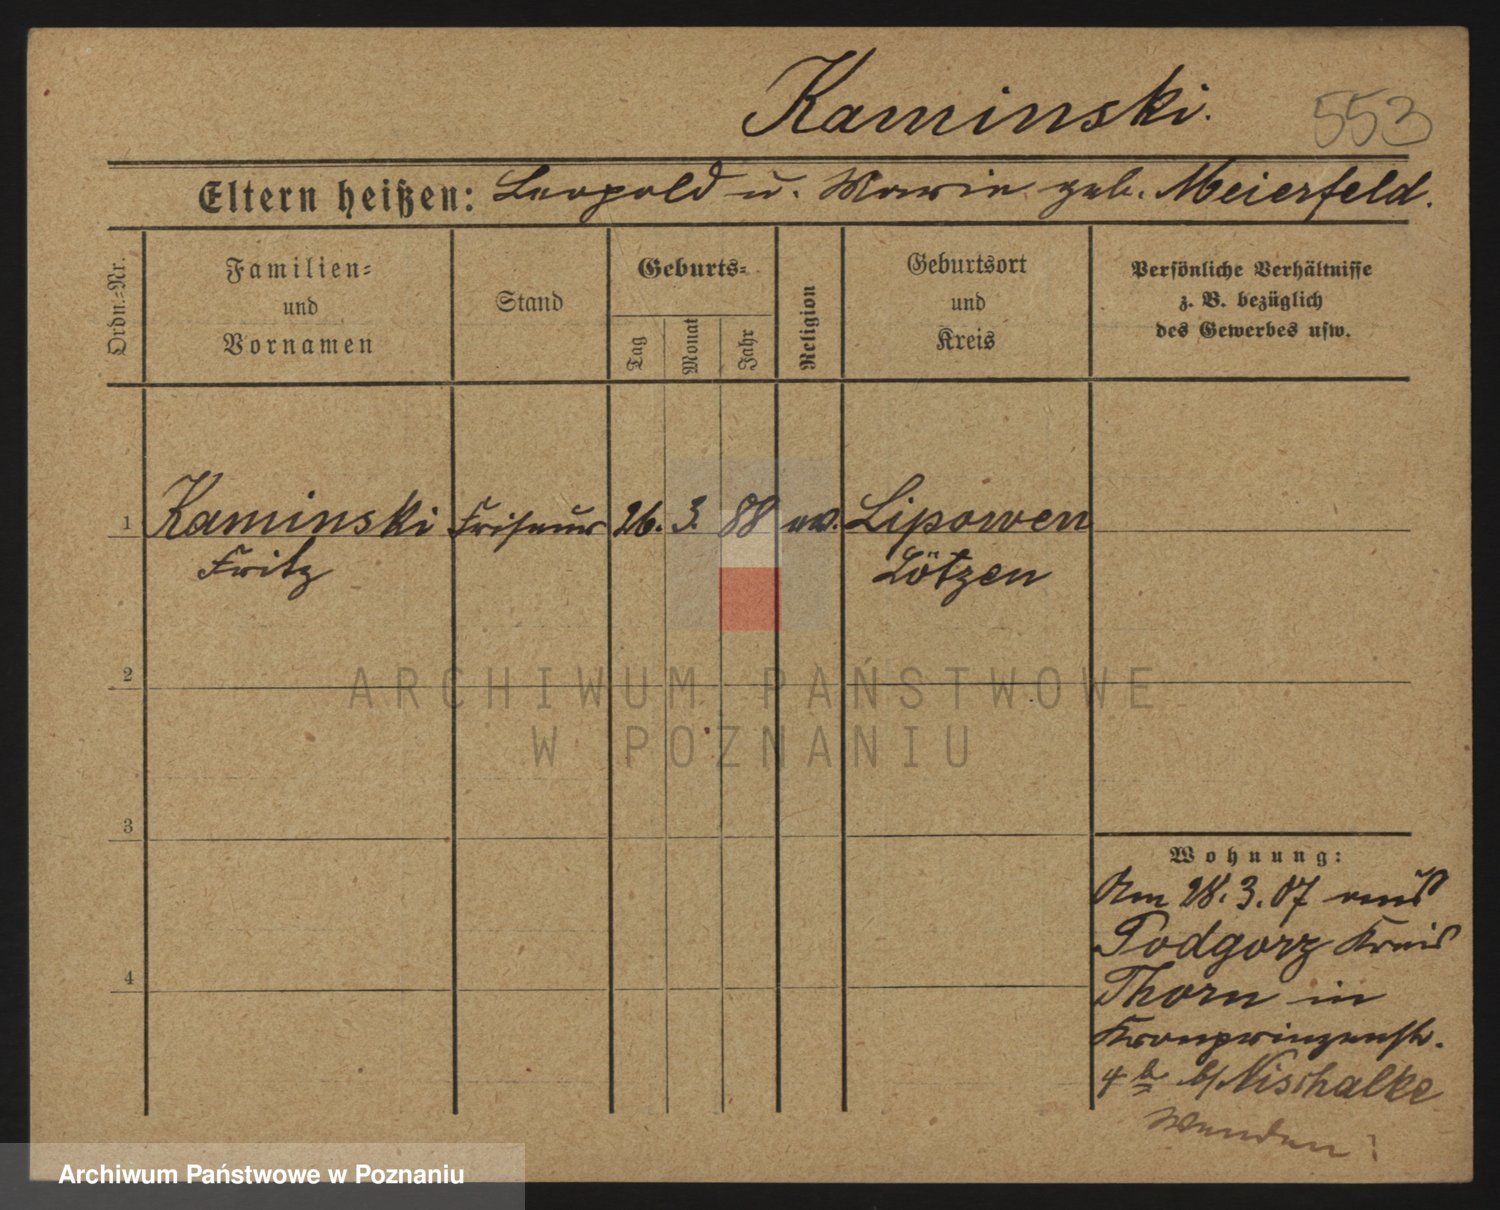 Kaminski.
553
Eltern heißen: Leopold u. Marie geb. Meierfeld.
Ordn.-Nr.
Familien-
und
Vornamen
Stand
Geburts-
Tag
Monat
Jahr
Religion
Geburtsort
und
Kreis
Persönliche Verhältnisse
z. B. bezüglich
des Gewerbes usw.
1 Kaminski Friseur 26. 3. 88 ev. Lipowen
Fritz Lötzen
2
3
4
Wohnung:
Am 28.3.07 aus
Podgorz Kreis
Thorn in
Kronprinzenstr.
4 b/ Nischalke
Wenden!
ARCHIWUM PAŃSTWOWE
W POZNANIU
Archiwum Państwowe w Poznaniu